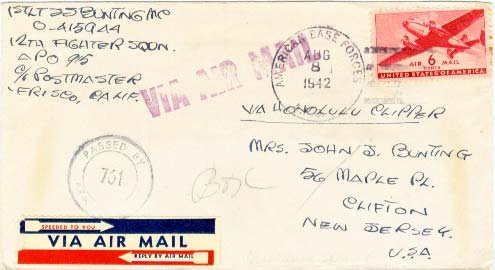 1ST LT JJ BUNTING MC
O-415944
12TH FIGHTER SQDN.
APO 915
C/O POSTMASTER
FRISCO, CALIF.
VIA AIR MAIL
AMERICAN BASE FORCES
AUG
8
1942
AIR 6 MAIL
CENTS
UNITED STATES OF AMERICA
VIA HONOLULU CLIPPER
MRS. JOHN J. BUNTING
56 MAPLE PL.
CLIFTON
NEW JERSEY.
U.S.A
PASSED BY
701
SPEEDED TO YOU
VIA AIR MAIL
REPLY BY AIR MAIL